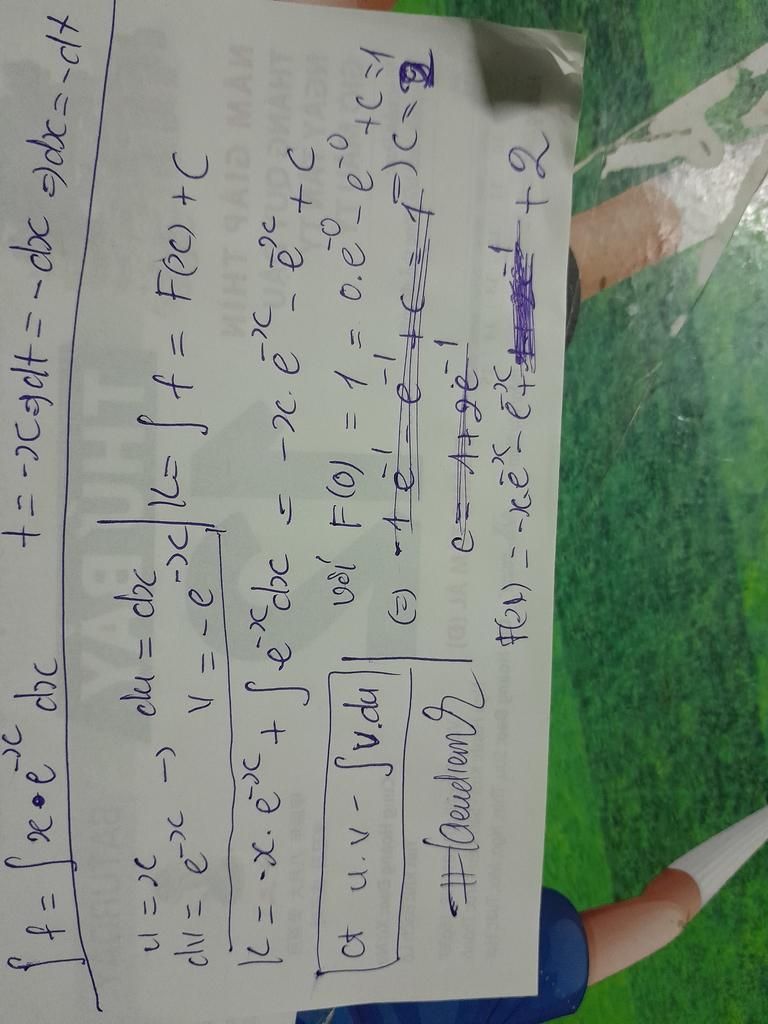 ∫f = ∫x.e^-x dx    t = -x => dt = -dx => dx = -dt
u = x
dv = e^-x → du = dx
v = -e^-x | K = ∫f = F(x) + C
K = -x.e^-x + ∫e^-x dx = -x.e^-x - e^-x + C
ct u.v - ∫v.du
với F(0) = 1 = 0.e^-0 - e^-0 + C = 1
(=) -1e^-1 - e^-1 + C = 1 =) C = 2
C = 1 + 2e^-1
F(x) = -x.e^-x - e^-x + 2